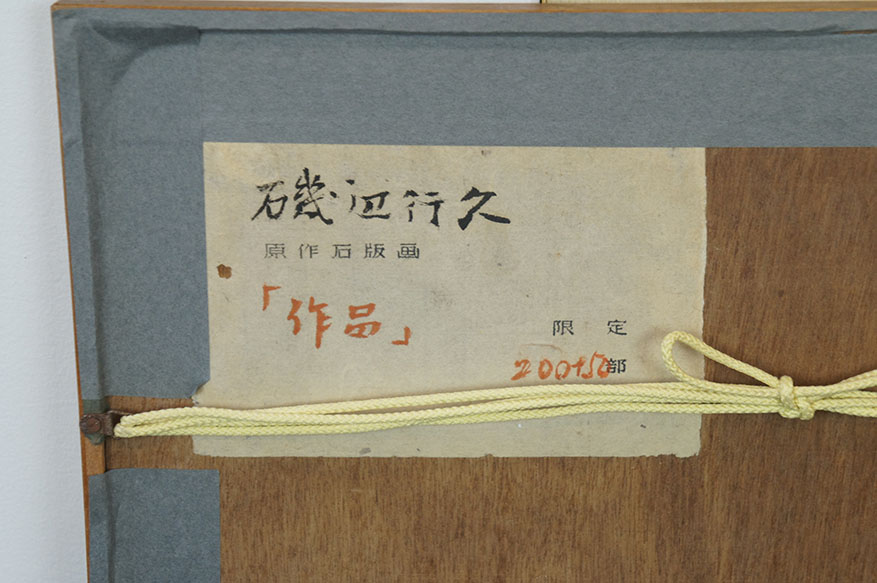 磯辺行久
原作石版画
「作品」
限定
200+50部